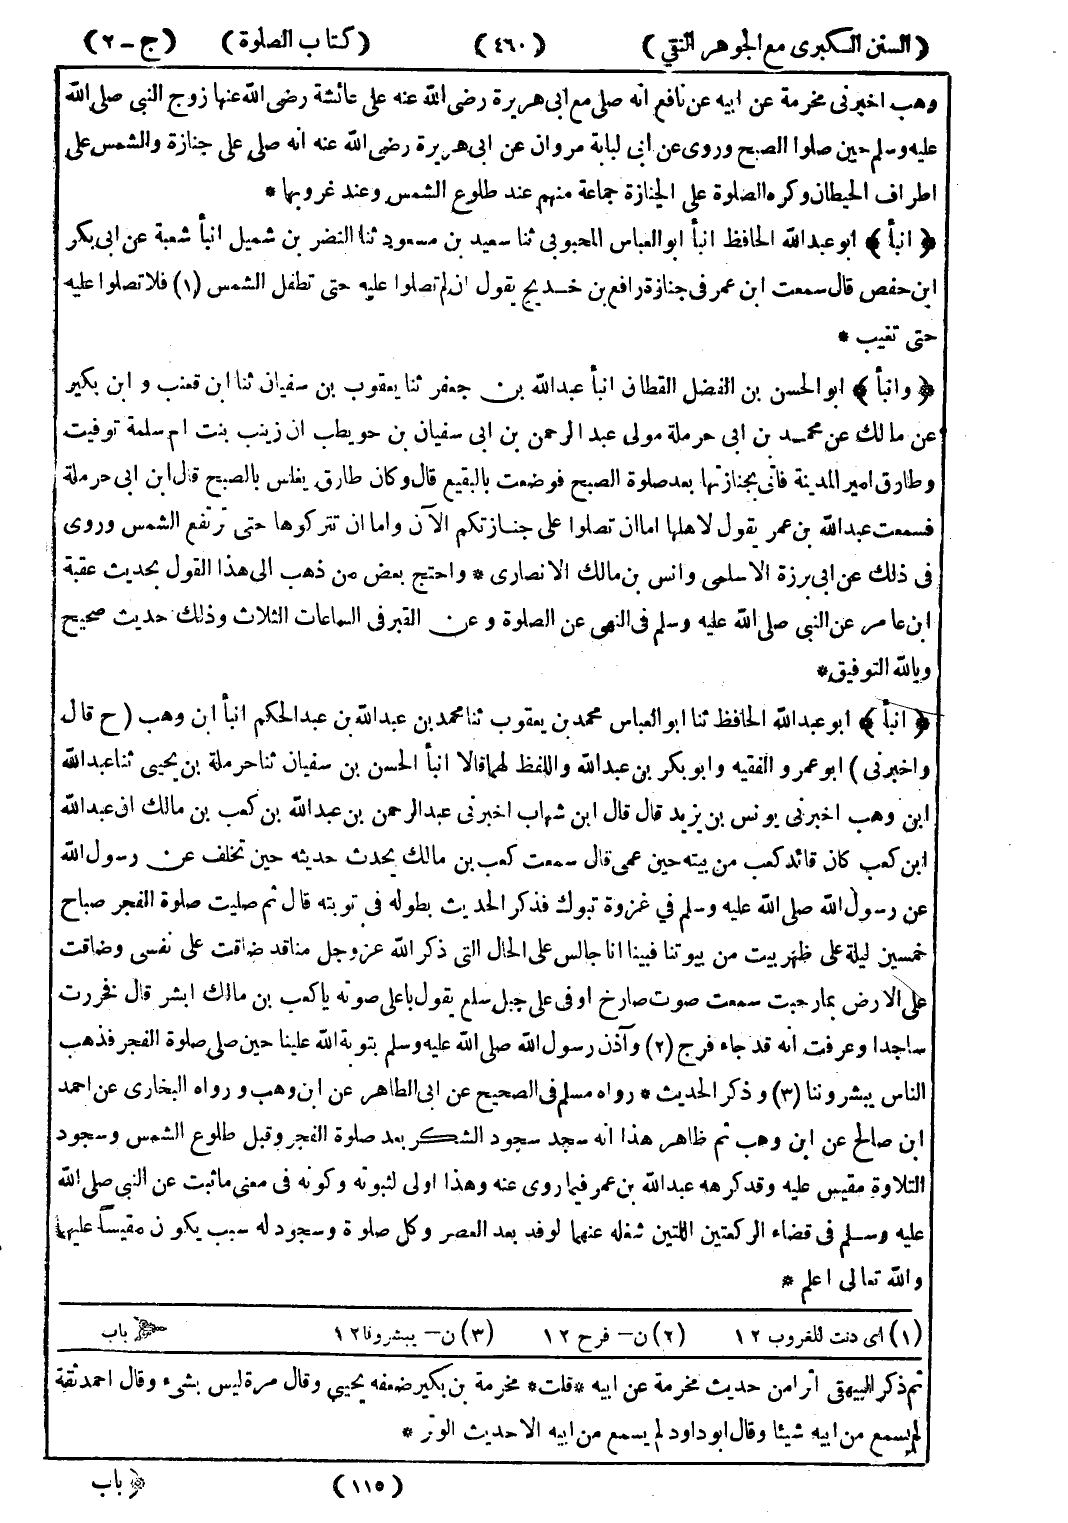 ( السنن الكبرى مع الجوهر النقي ) (٤٦٠) ( كتاب الصلوة ) (ج - ٢)
وهب اخبرنى مخرمة عن ابيه عن نافع انه صلى مع ابى هريرة رضى الله عنه على عائشة رضى الله عنها زوج النبى صلى الله
عليه وسلم حين صلوا الصبح وروى عن ابى لبابة مروان عن ابى هريرة رضى الله عنه انه صلى على جنازة والشمس على
اطراف الحيطان وكره الصلوة على الجنازة جماعة منهم عند طلوع الشمس وعند غروبها *
﴿ انبأ ﴾ ابو عبد الله الحافظ انبأ ابو العباس المحبوبى ثنا سعيد بن مسعود ثنا النضر بن شميل انبأ شعبة عن ابى بكر
ابن حفص قال سمعت ابن عمر فى جنازة رافع بن خديج يقول ان لم تصلوا عليه حتى تطفل الشمس (١) فلا تصلوا عليه
حتى تغيب *
﴿ وانبأ ﴾ ابو الحسن بن الفضل القطان انبأ عبد الله بن جعفر ثنا يعقوب بن سفيان ثنا ابن قعنب و ابن بكير
عن مالك عن محمد بن ابى حرملة مولى عبد الرحمن بن ابى سفيان بن حويطب ان زينب بنت ام سلمة توفيت
وطارق امير المدينة فاتى بجنازتها بعد صلوة الصبح فوضعت بالبقيع قال وكان طارق يغلس بالصبح قال ابن ابى حرملة
فسمعت عبد الله بن عمر يقول لاهلها اما ان تصلوا على جنازتكم الآن واما ان تتركوها حتى ترتفع الشمس وروى
فى ذلك عن ابى برزة الاسلمى وانس بن مالك الانصارى * واحتج بعض من ذهب الى هذا القول بحديث عقبة
ابن عامر عن النبى صلى الله عليه وسلم فى النهى عن الصلوة و عن القبر فى الساعات الثلاث وذلك حديث صحيح
وبالله التوفيق *
﴿ انبأ ﴾ ابو عبد الله الحافظ ثنا ابو العباس محمد بن يعقوب ثنا محمد بن عبد الله بن عبد الحكم انبأ ابن وهب ( ح قال
واخبرنى ) ابو عمرو الفقيه وابو بكر بن عبد الله واللفظ لهما قالا انبأ الحسن بن سفيان ثنا حرملة بن يحيى ثنا عبد الله
ابن وهب اخبرنى يونس بن يزيد قال قال ابن شهاب اخبرنى عبد الرحمن بن عبد الله بن كعب بن مالك ان عبد الله
ابن كعب كان قائد كعب من بيته حين عمى قال سمعت كعب بن مالك يحدث حديثه حين تخلف عن رسول الله
عن رسول الله صلى الله عليه وسلم في غزوة تبوك فذكر الحديث بطوله فى توبته قال ثم صليت صلوة الفجر صباح
خمسين ليلة على ظهر بيت من بيوتنا فبينا انا جالس على الحال التى ذكر الله عز وجل منا قد ضاقت على نفسى وضاقت
على الارض بما رحبت سمعت صوت صارخ اوفى على جبل سلع يقول باعلى صوته يا كعب بن مالك ابشر قال فخررت
ساجدا وعرفت انه قد جاء فرج (٢) وآذن رسول الله صلى الله عليه وسلم بتوبة الله علينا حين صلى صلوة الفجر فذهب
الناس يبشروننا (٣) و ذكر الحديث * رواه مسلم فى الصحيح عن ابى الطاهر عن ابن وهب و رواه البخارى عن احمد
ابن صالح عن ابن وهب ثم ظاهر هذا انه سجد سجود الشكر بعد صلوة الفجر وقبل طلوع الشمس وسجود
التلاوة مقيس عليه وقد كرهه عبد الله بن عمر فيما روى عنه وهذا اولى لثبوته وكونه فى معنى ما ثبت عن النبى صلى الله
عليه وسلم فى قضاء الركعتين اللتين شغله عنهما الوفد بعد العصر وكل صلوة وسجود له سبب يكون مقيسا عليها
والله تعالى اعلم *
(١) اى دنت للغروب ١٢ (٢) ن - فرح ١٢ (٣) ن - يبشرونا ١٢ باب
ثم ذكر البيهقى اثرا من حديث مخرمة عن ابيه * قلت * مخرمة بن بكير ضعفه يحيى وقال مرة ليس بشىء وقال احمد ثقة
لم يسمع من ابيه شيئا وقال ابو داود لم يسمع من ابيه الا حديث الوتر *
(١١٥) باب